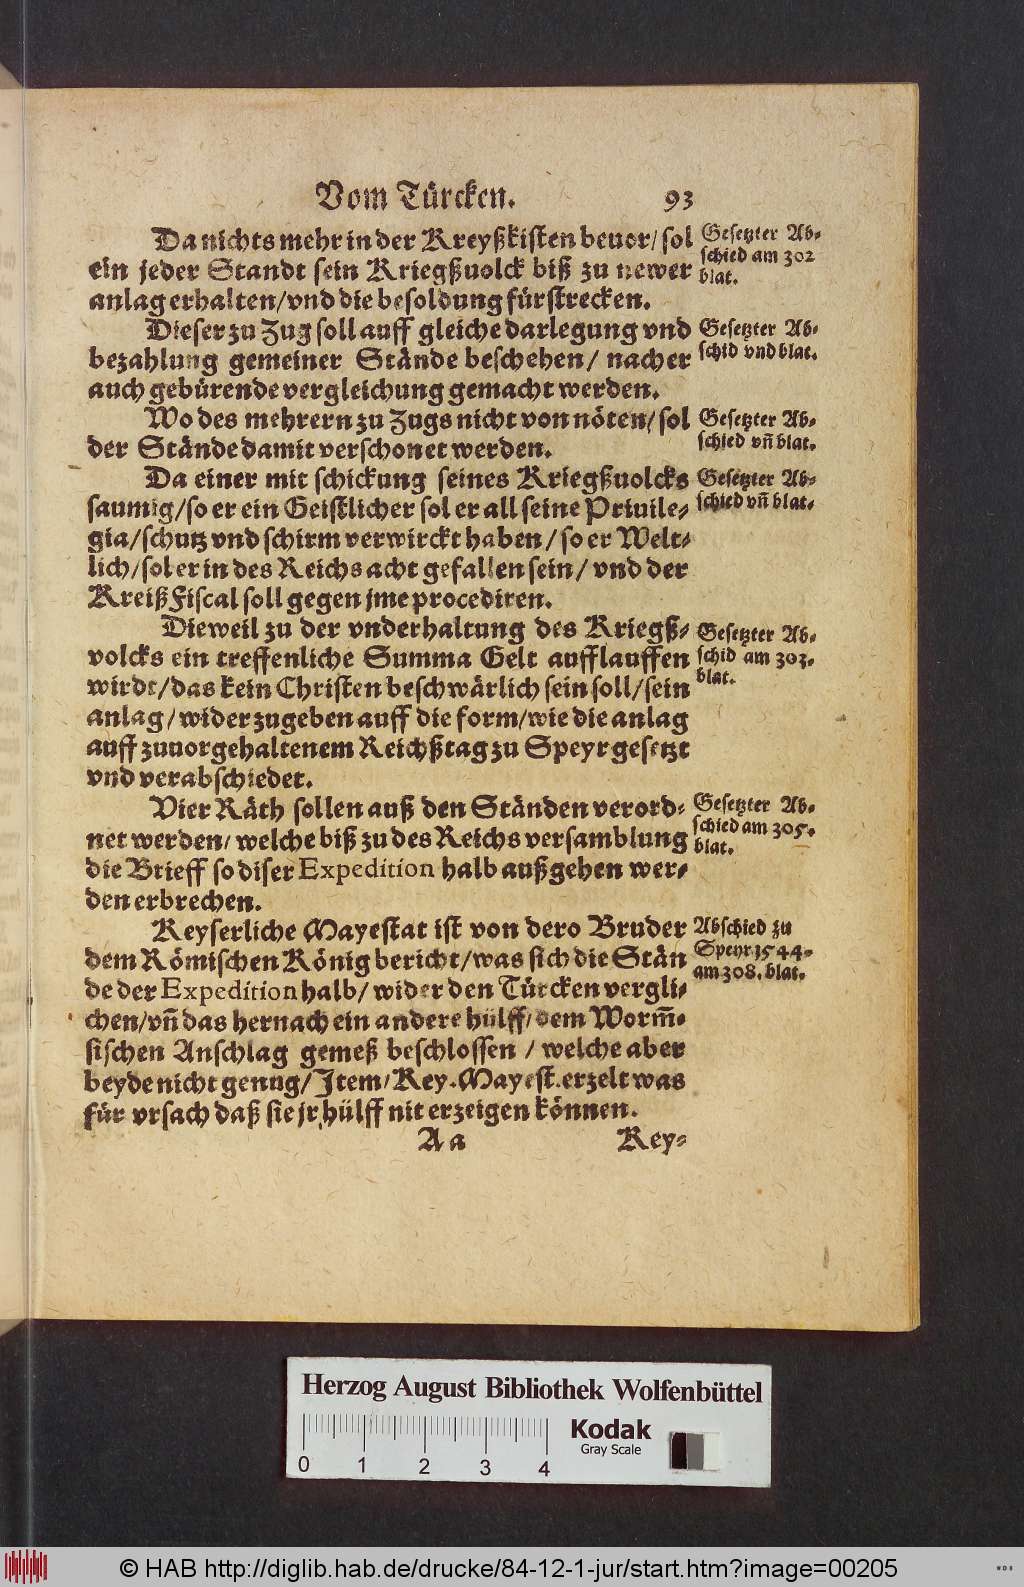 Vom Türcken. 93
Da nichts mehr in der Kreyßkisten beuor/ sol
ein jeder Standt sein Kriegßuolck biß zu newer
anlag erhalten/vnd die besoldung fürstrecken.
Gesetzter Ab-
schied am 302
blat.
Dieser zu Zug soll auff gleiche darlegung vnd
bezahlung gemeiner Stände beschehen/ nacher
auch gebürende vergleichung gemacht werden.
Gesetzter Ab-
schid vnd blat.
Wo des mehrern zu Zugs nicht von nöten/ sol
der Stände damit verschonet werden.
Gesetzter Ab-
schied vñ blat.
Da einer mit schickung seines Kriegßuolcks
saumig/so er ein Geistlicher sol er all seine Priuile-
gia/schutz vnd schirm verwirckt haben/so er Welt-
lich/sol er in des Reichs acht gefallen sein/ vnd der
Kreiß Fiscal soll gegen jme procediren.
Gesetzter Ab-
schied vñ blat.
Dieweil zu der vnderhaltung des Kriegß-
volcks ein treffenliche Summa Gelt aufflauffen
wirdt/das kein Christen beschwärlich sein soll/sein
anlag/wider zugeben auff die form/wie die anlag
auff zuuor gehaltenem Reichßtag zu Speyr gesetzt
vnd verabschiedet.
Gesetzter Ab-
schid am 303.
blat.
Vier Räth sollen auß den Ständen verord-
net werden/ welche biß zu des Reichs versamblung
die Brieff so diser Expedition halb außgehen wer-
den erbrechen.
Gesetzter Ab-
schied am 305.
blat.
Keyserliche Mayestat ist von dero Bruder
dem Römischen König bericht/was sich die Stän
de der Expedition halb/ wider den Türcken vergli-
chen/vñ das hernach ein andere hülff/dem Worm̃-
sischen Anschlag gemeß beschlossen / welche aber
beyde nicht genug/Item/Key. Mayest. erzelt was
für vrsach daß sie jr hülff nit erzeigen können.
Abschied zu
Speyr 1544.
am 308. blat.
Aa Key-
Herzog August Bibliothek Wolfenbüttel
0 1 2 3 4
Kodak
Gray Scale
© HAB http://diglib.hab.de/drucke/84-12-1-jur/start.htm?image=00205